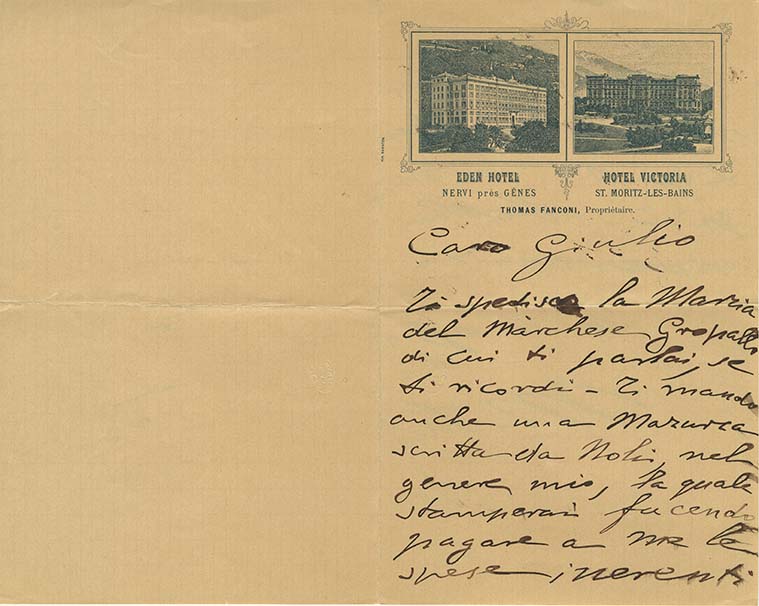 EDEN HOTEL
NERVI près GÊNES
HOTEL VICTORIA
ST. MORITZ-LES-BAINS
THOMAS FANCONI, Propriétaire.
Caro Giulio
Ti spedisco la Marcia
del Marchese Gropallo
di cui ti parlai, se
ti ricordi – Ti mando
anche una Mazurca
scritta da Noli, nel
genere mio, la quale
stamperai facendo
pagare a me le
spese inerenti